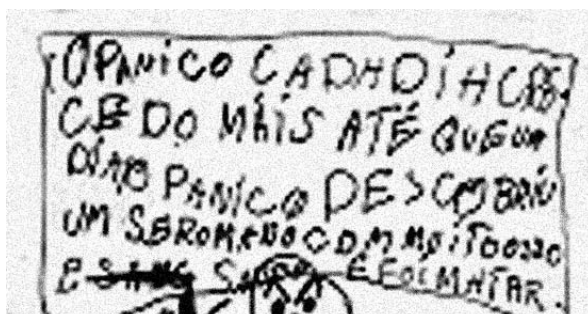 O PANICO CADA DÍA CRE
CE DO MÁIS ATÉ QUE UM
DÍA O PANICO DESCOBRIU
UM SER OMANO COM MUITO OSSO
E SANG E FOI MATAR